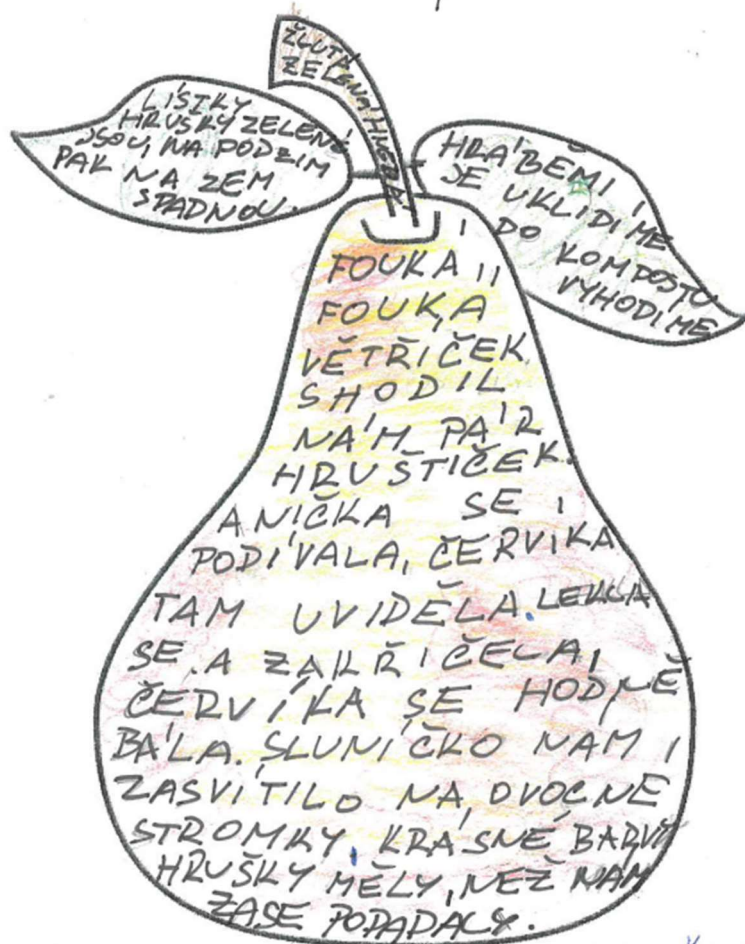 ŽLUTÁ
ZELENÁ HNĚDÁ
LÍSTKY
HRUŠKY ZELENÉ
JSOU, NA PODZIM
PAK NA ZEM
SPADNOU.
HRÁBĚMI
JE UKLIDÍME
DO
KOMPOSTU
VYHODÍME
FOUKÁ,
FOUKÁ
VĚTŘÍČEK
SHODIL
NÁM PÁR
HRUŠTIČEK.
ANIČKA SE
PODÍVALA, ČERVÍKA
TAM UVIDĚLA. LEKLA
SE A ZAKŘIČELA,
ČERVÍKA SE HODNĚ
BÁLA. SLUNÍČKO NÁM
ZASVÍTILO NA OVOCNÉ
STROMKY, KRÁSNÉ BARVY
HRUŠKY MĚLY, NEŽ NÁM
ZASE POPADALY.